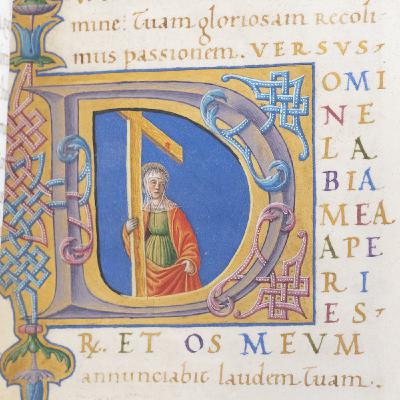 mine: Tuam gloriosam Recoli
mus passionem. VERSUS·
DOMI
NE
LA
BIA
MEA
APE
RI
ES·
℞. ET OS MEVM
annunciabit laudem Tuam.